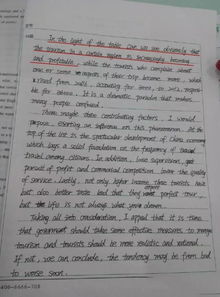 In the light of the table one we are obviously that
the tourism in a certain region is increasingly booming
and profitable, while the tourists who complain about
one or some respects of their trip become more, which
arised from
for others. It is a dramatic paradox that makes
many people confused.
There maybe some contributing factors. I would
propose exerting an influence on this phenomenon. At the
top of the list is the spectacular development of China economy
which lays a solid foundation on the frequency of
travel among citizens. In addition, lose supervision, get
pursuit of profit and commercial competition lower the quality
of service. Lastly, not only higher income these tourists have
but also better taste lead that they want perfect tour,
but life is not always what you
Taking all into consideration, I appeal that it is time
that government should take some effective measures to manage
tourism and tourists should be more realistic and rational.
If not, we can conclude, the tendency may be from bad
to worse soon.
400-6666-708